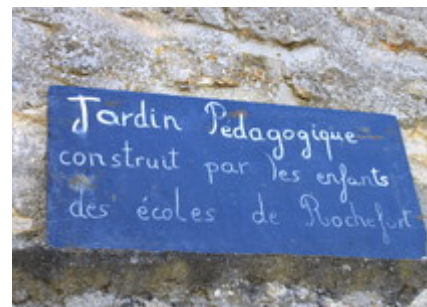 Jardin Pédagogique
construit par les enfants
des écoles de Rochefort